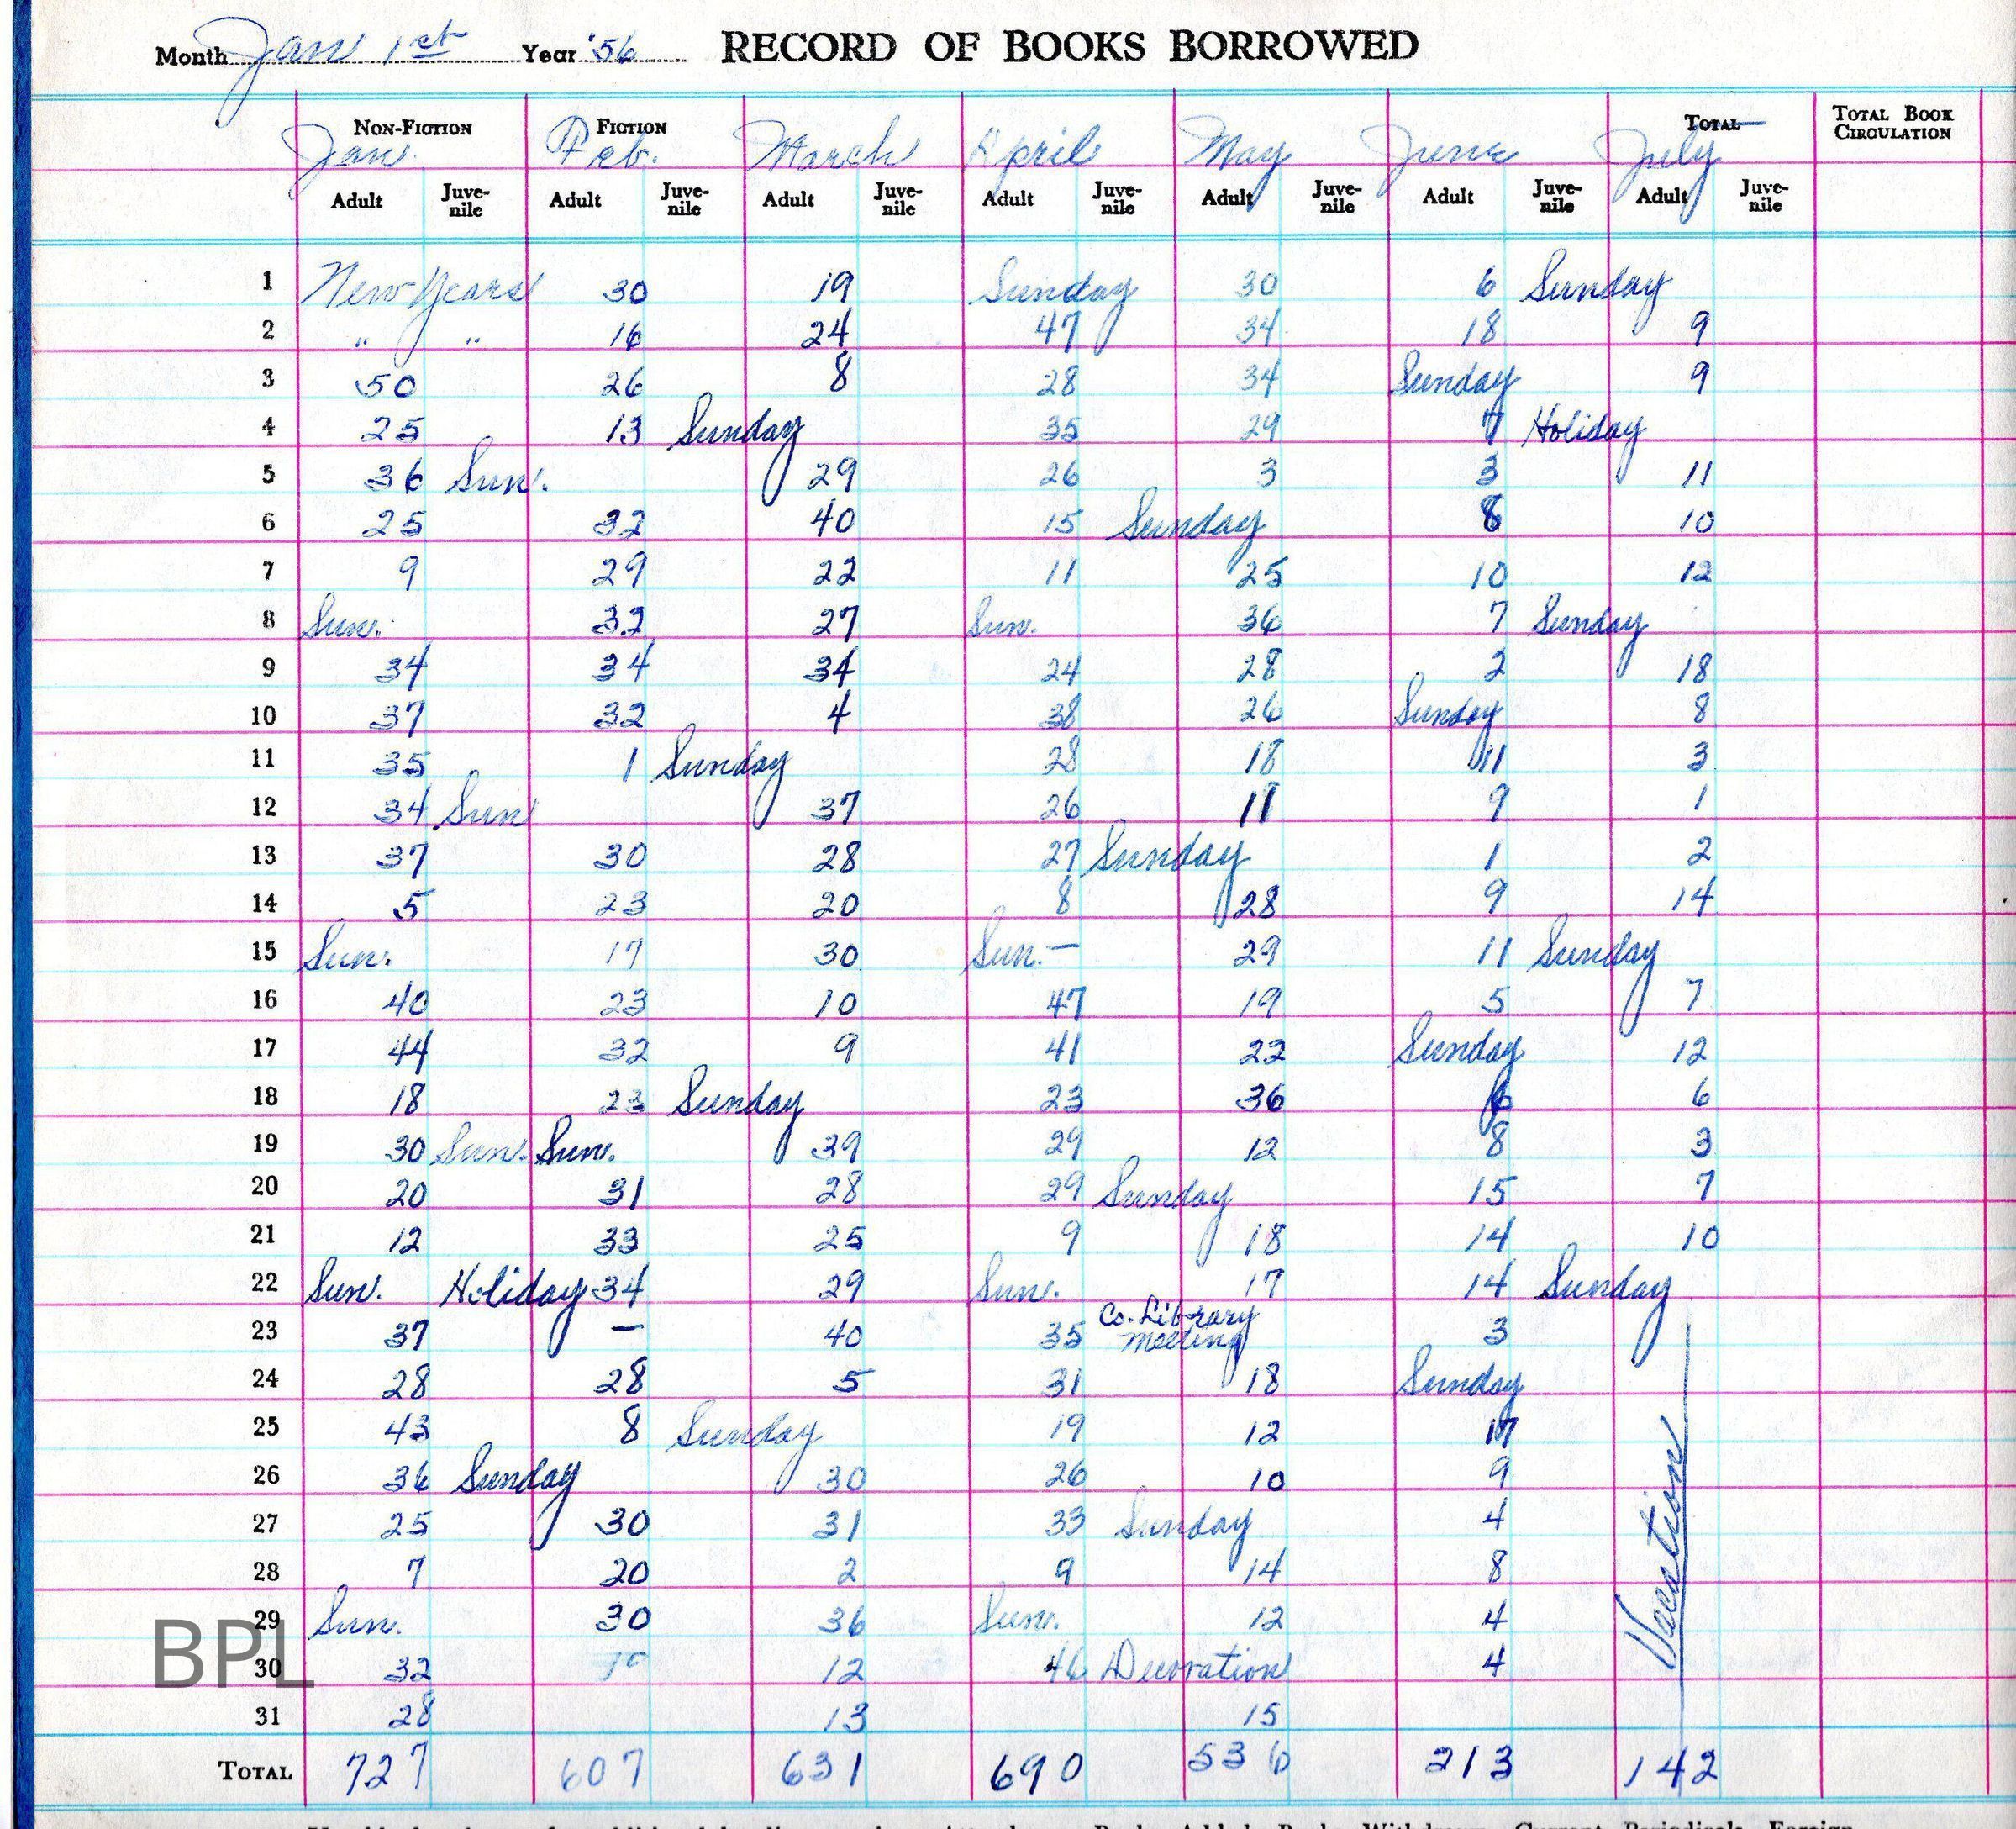 Month Jan 1st Year '56 RECORD OF BOOKS BORROWED
NON-FICTION FICTION TOTAL TOTAL BOOK CIRCULATION
Jan. Feb. March April May June July
Adult Juve-nile Adult Juve-nile Adult Juve-nile Adult Juve-nile Adult Juve-nile Adult Juve-nile Adult Juve-nile
1 New Years 30 19 Sunday 30 6 Sunday
2 " " 16 24 47 34 18 9
3 50 26 8 28 34 Sunday 9
4 25 13 Sunday 35 29 7 Holiday
5 36 Sun. 29 26 3 3 11
6 25 32 40 15 Sunday 8 10
7 9 29 22 11 25 10 12
8 Sun. 32 27 Sun. 36 7 Sunday
9 34 34 34 24 28 2 18
10 37 32 4 38 26 Sunday 8
11 35 1 Sunday 28 18 11 3
12 34 Sun 37 26 11 9 1
13 37 30 28 27 Sunday 1 2
14 5 23 20 8 28 9 14
15 Sun. 17 30 Sun. — 29 11 Sunday
16 40 23 10 47 19 5 7
17 44 32 9 41 22 Sunday 12
18 18 23 Sunday 23 36 6 6
19 30 Sun. Sun. 39 29 12 8 3
20 20 31 28 29 Sunday 15 7
21 12 33 25 9 18 14 10
22 Sun. Holiday 34 29 Sun. 17 14 Sunday
23 37 — 40 35 Co. Library meeting 3
24 28 28 5 31 18 Sunday
25 43 8 Sunday 19 12 17
26 36 Sunday 30 26 10 9
27 25 30 31 33 Sunday 4
28 7 20 2 9 14 8
29 Sun. 30 36 Sun. 12 4
30 32 12 46 Decoration 4
31 28 13 15
Vacation
TOTAL 727 607 631 690 536 213 142
BPL